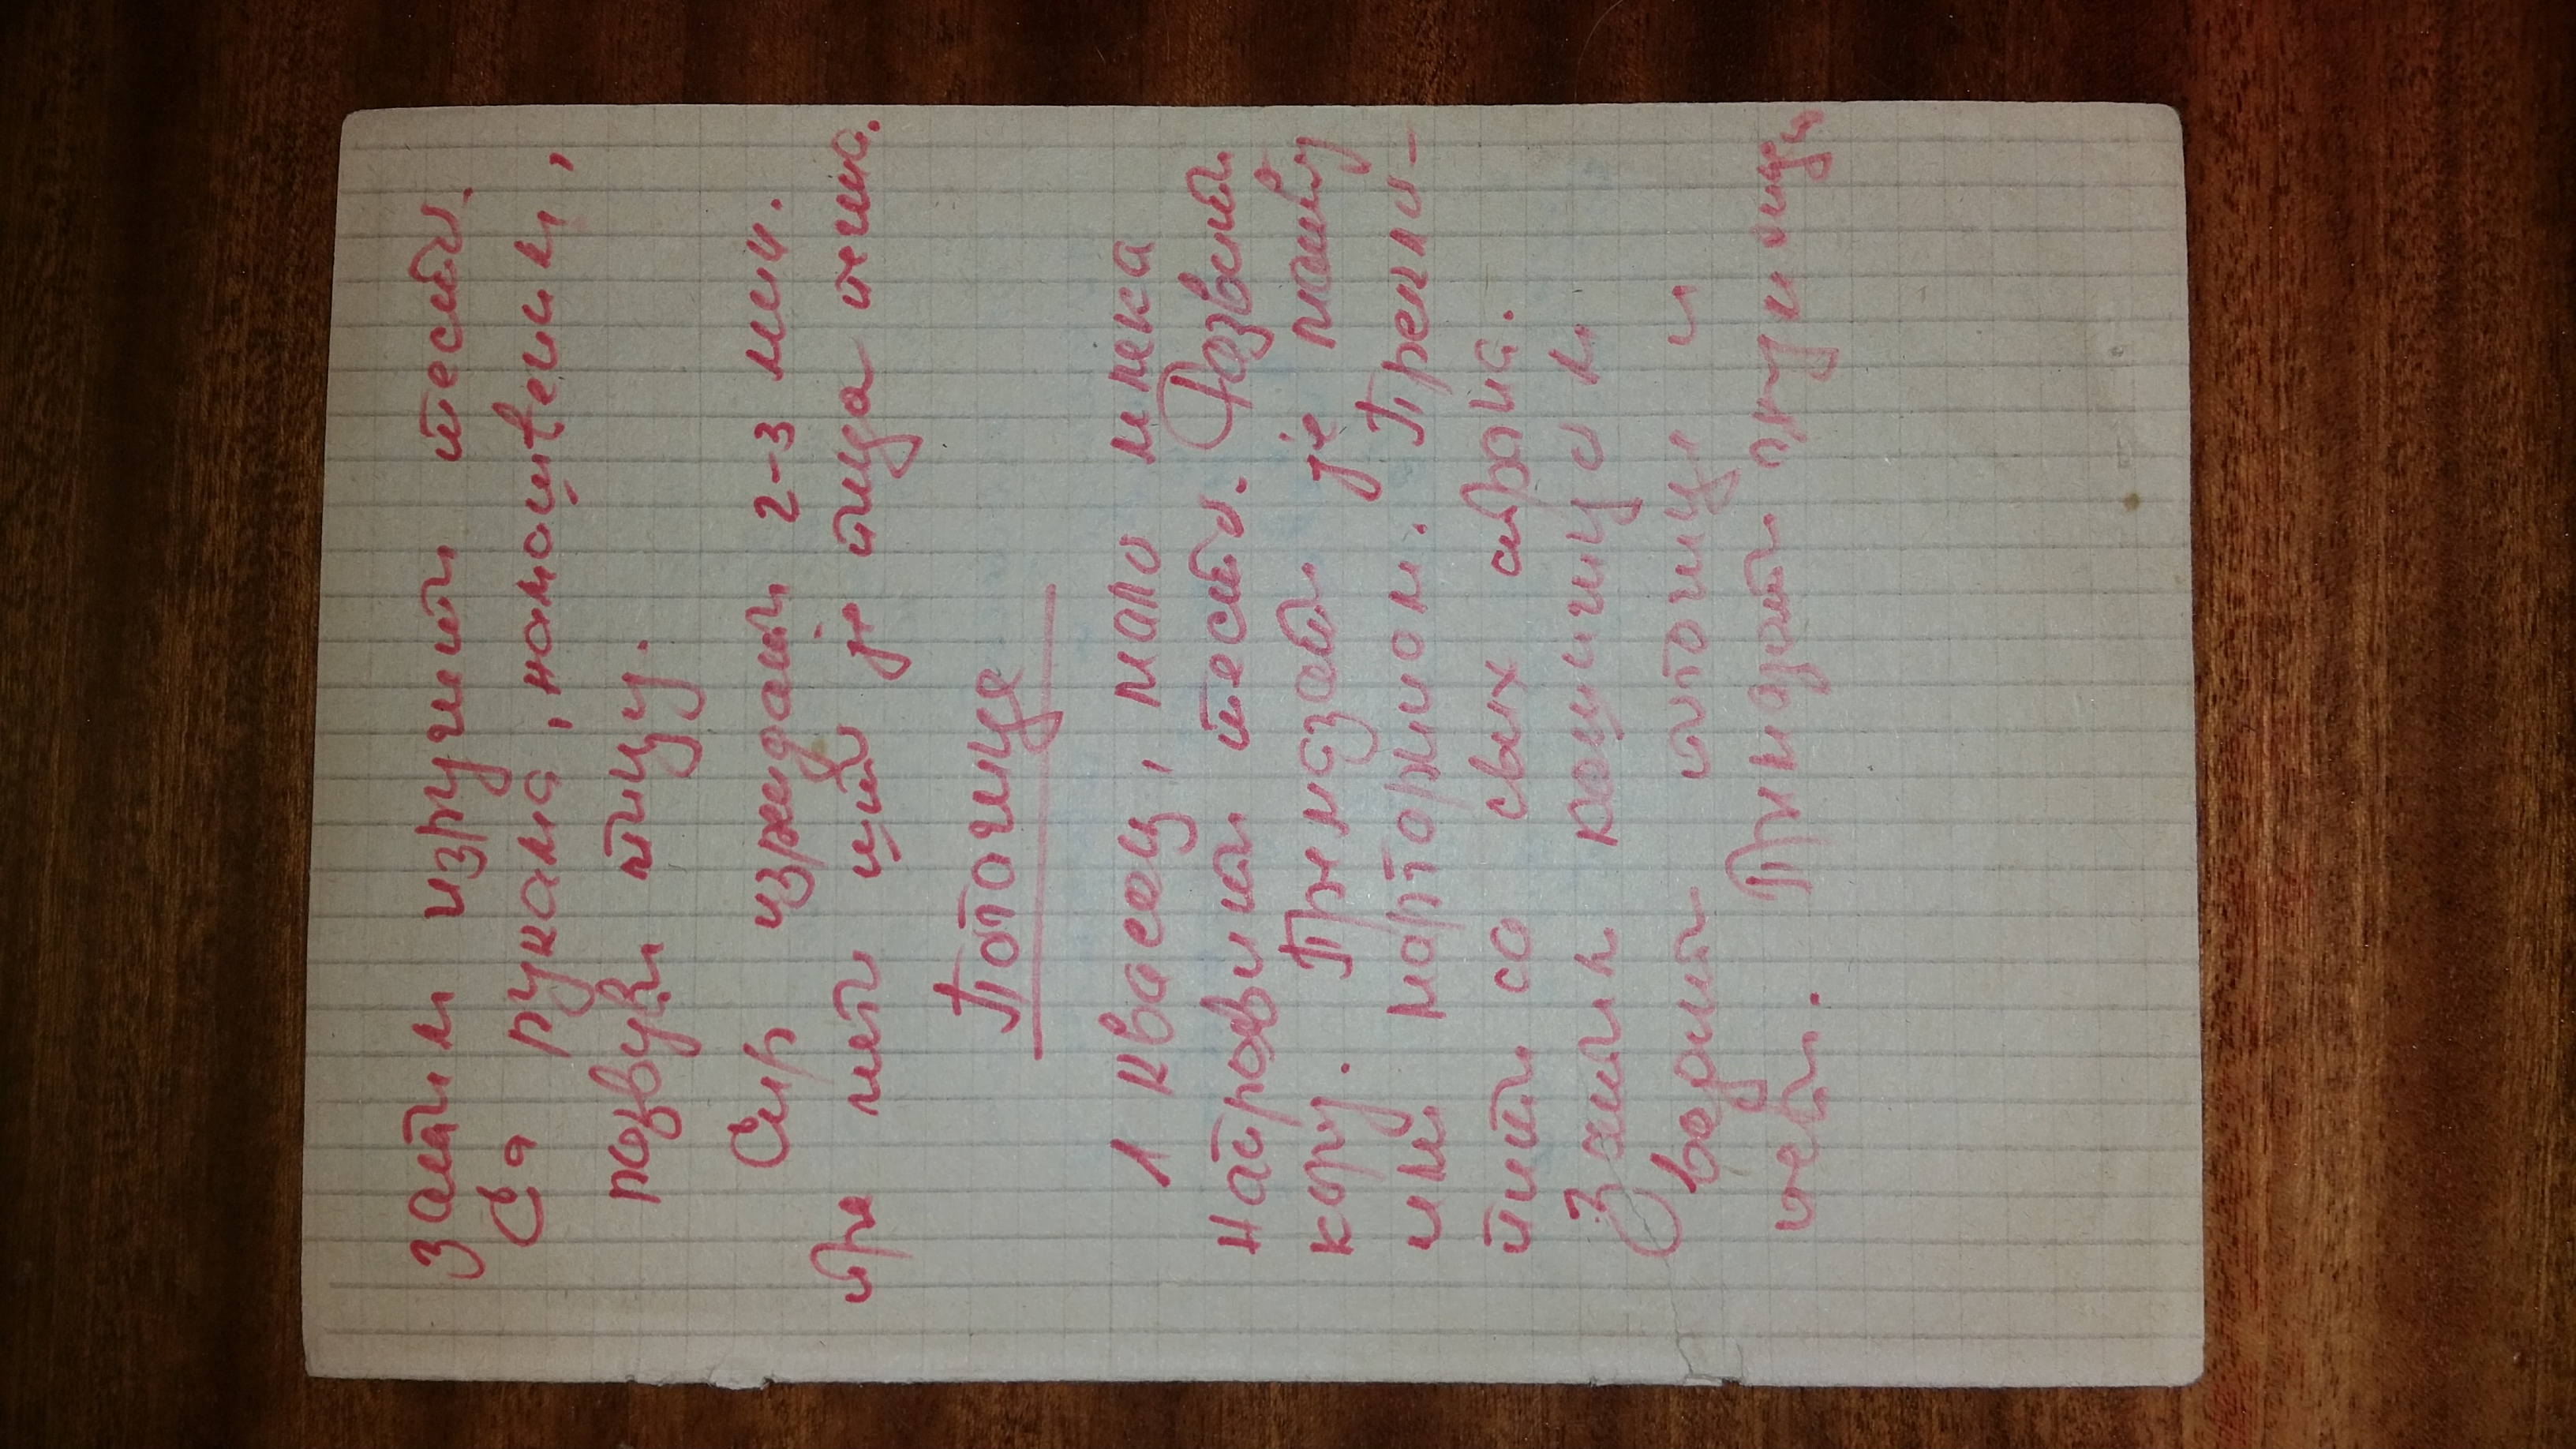 затим изручити тесто.
Са рукама, намашћеним,
развући пицу.
Сир изрендати 2-3 мин.
пре него што је пица печена.
Погачице
1 квасац, мало млека
направити тесто. Развити
кору. Премазати је машћу
или маргарином. Прекло-
пити са свих страна.
Затим кашичицом
вадити погачице и
пећи. Премазати